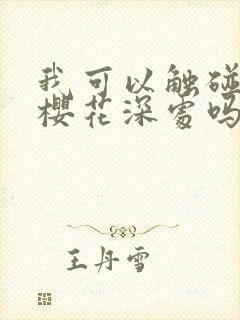 我可以触碰
樱花深处吗
王丹雪